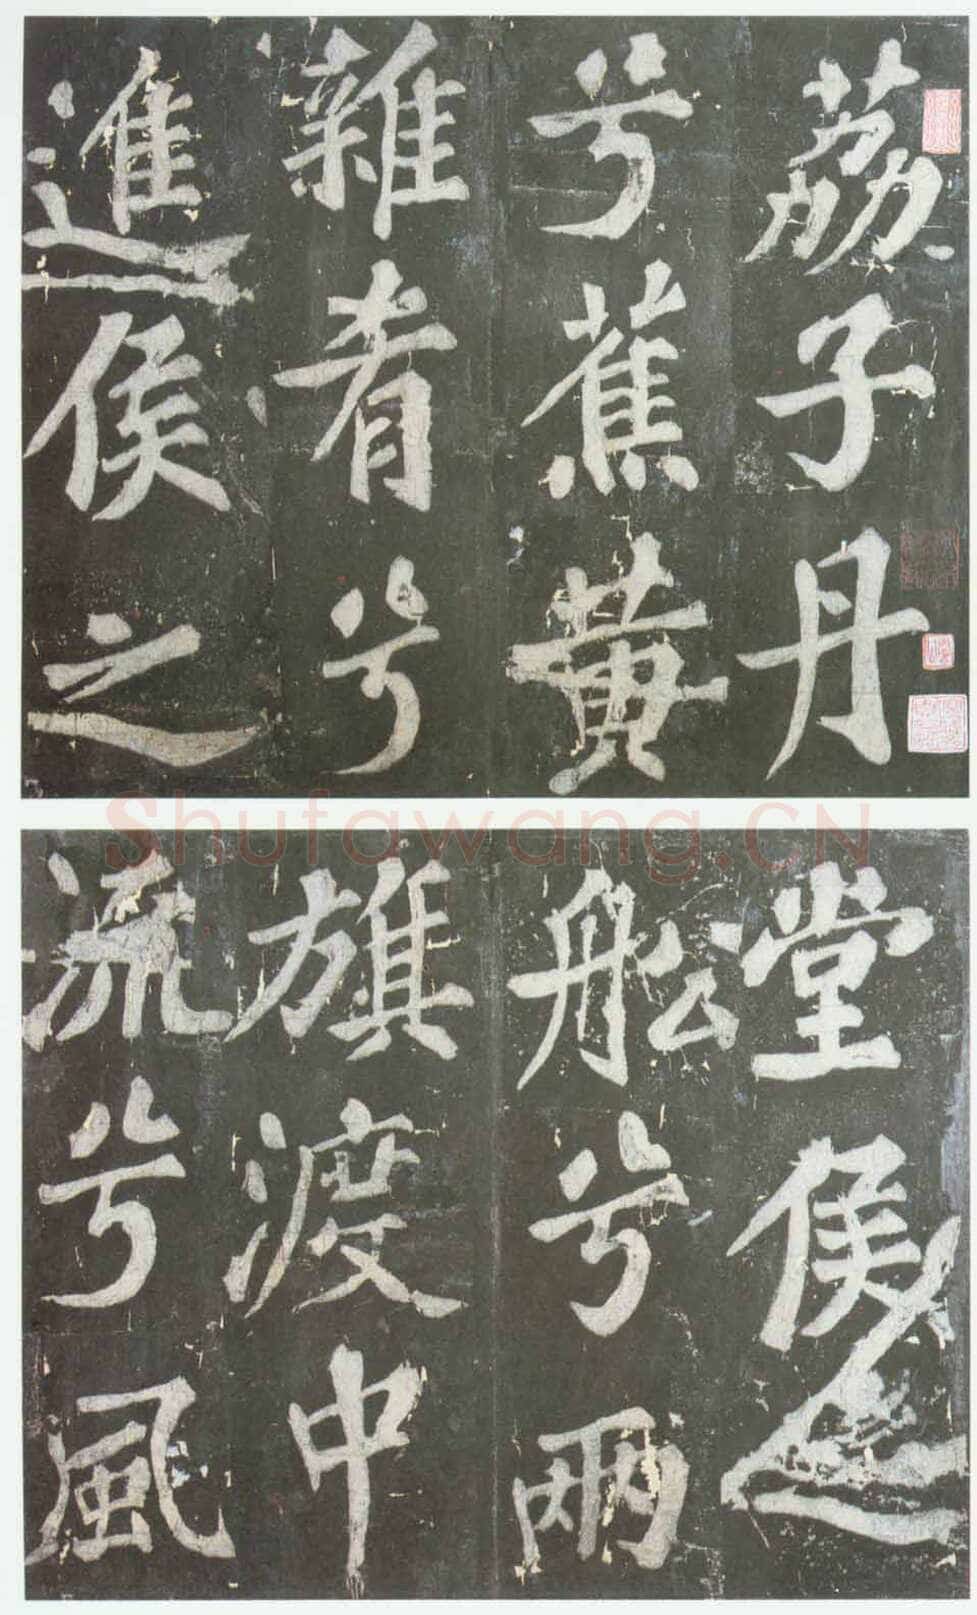 荔子丹
兮蕉黄
雜肴兮
進侯之
堂侯之
舩兮兩
旗渡中
流兮風
Shufawang.CN